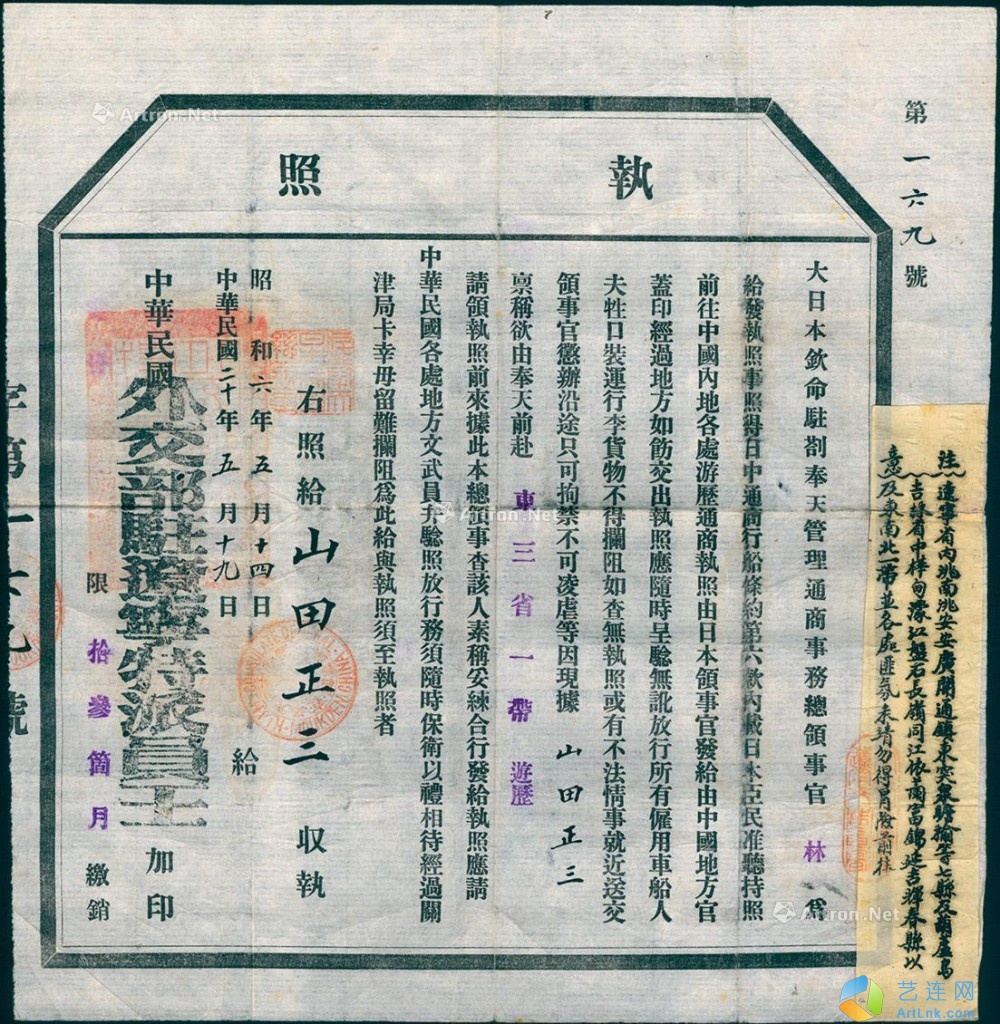 第一六九號
執照
大日本欽命駐劄奉天管理通商事務總領事官 林 爲
給發執照事照得日中通商行船條約第六款內載日本臣民准聽持照
前往中國內地各處游歷通商執照由日本領事官發給由中國地方官
蓋印經過地方如飭交出執照應隨時呈驗無訛放行所有僱用車船人
夫牲口裝運行李貨物不得攔阻如查無執照或有不法情事就近送交
領事官懲辦沿途只可拘禁不可凌虐等因現據 山田正三
禀稱欲由奉天前赴 東三省一帶 遊歷
請領執照前來據此本總領事查該人素稱妥練合行發給執照應請
中華民國各處地方文武員弁驗照放行務須隨時保衛以禮相待經過關
津局卡幸毋留難攔阻爲此給與執照須至執照者
右照給 山田正三 收執
昭和六年五月十四日
中華民國二十年五月十九日 給
中華民國外交部駐遼寧特派員王 加印
限 拾參箇月 繳銷
字第一六九號
注意
遼寧省內洮南洮安安廣開通鎮東突泉瞻榆等七縣及葫蘆島
吉林省中樺甸濛江盤石長嶺同江依蘭富錦延吉琿春縣以
及東南北一帶並各處匪氛未靖勿得冒險前往
Artron.Net
Artron.Net
Artron.Net
Artron.Net
艺连网
ArtLnk.com